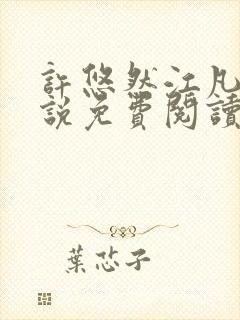 許悠然江凡
說免費閱讀
葉芯子